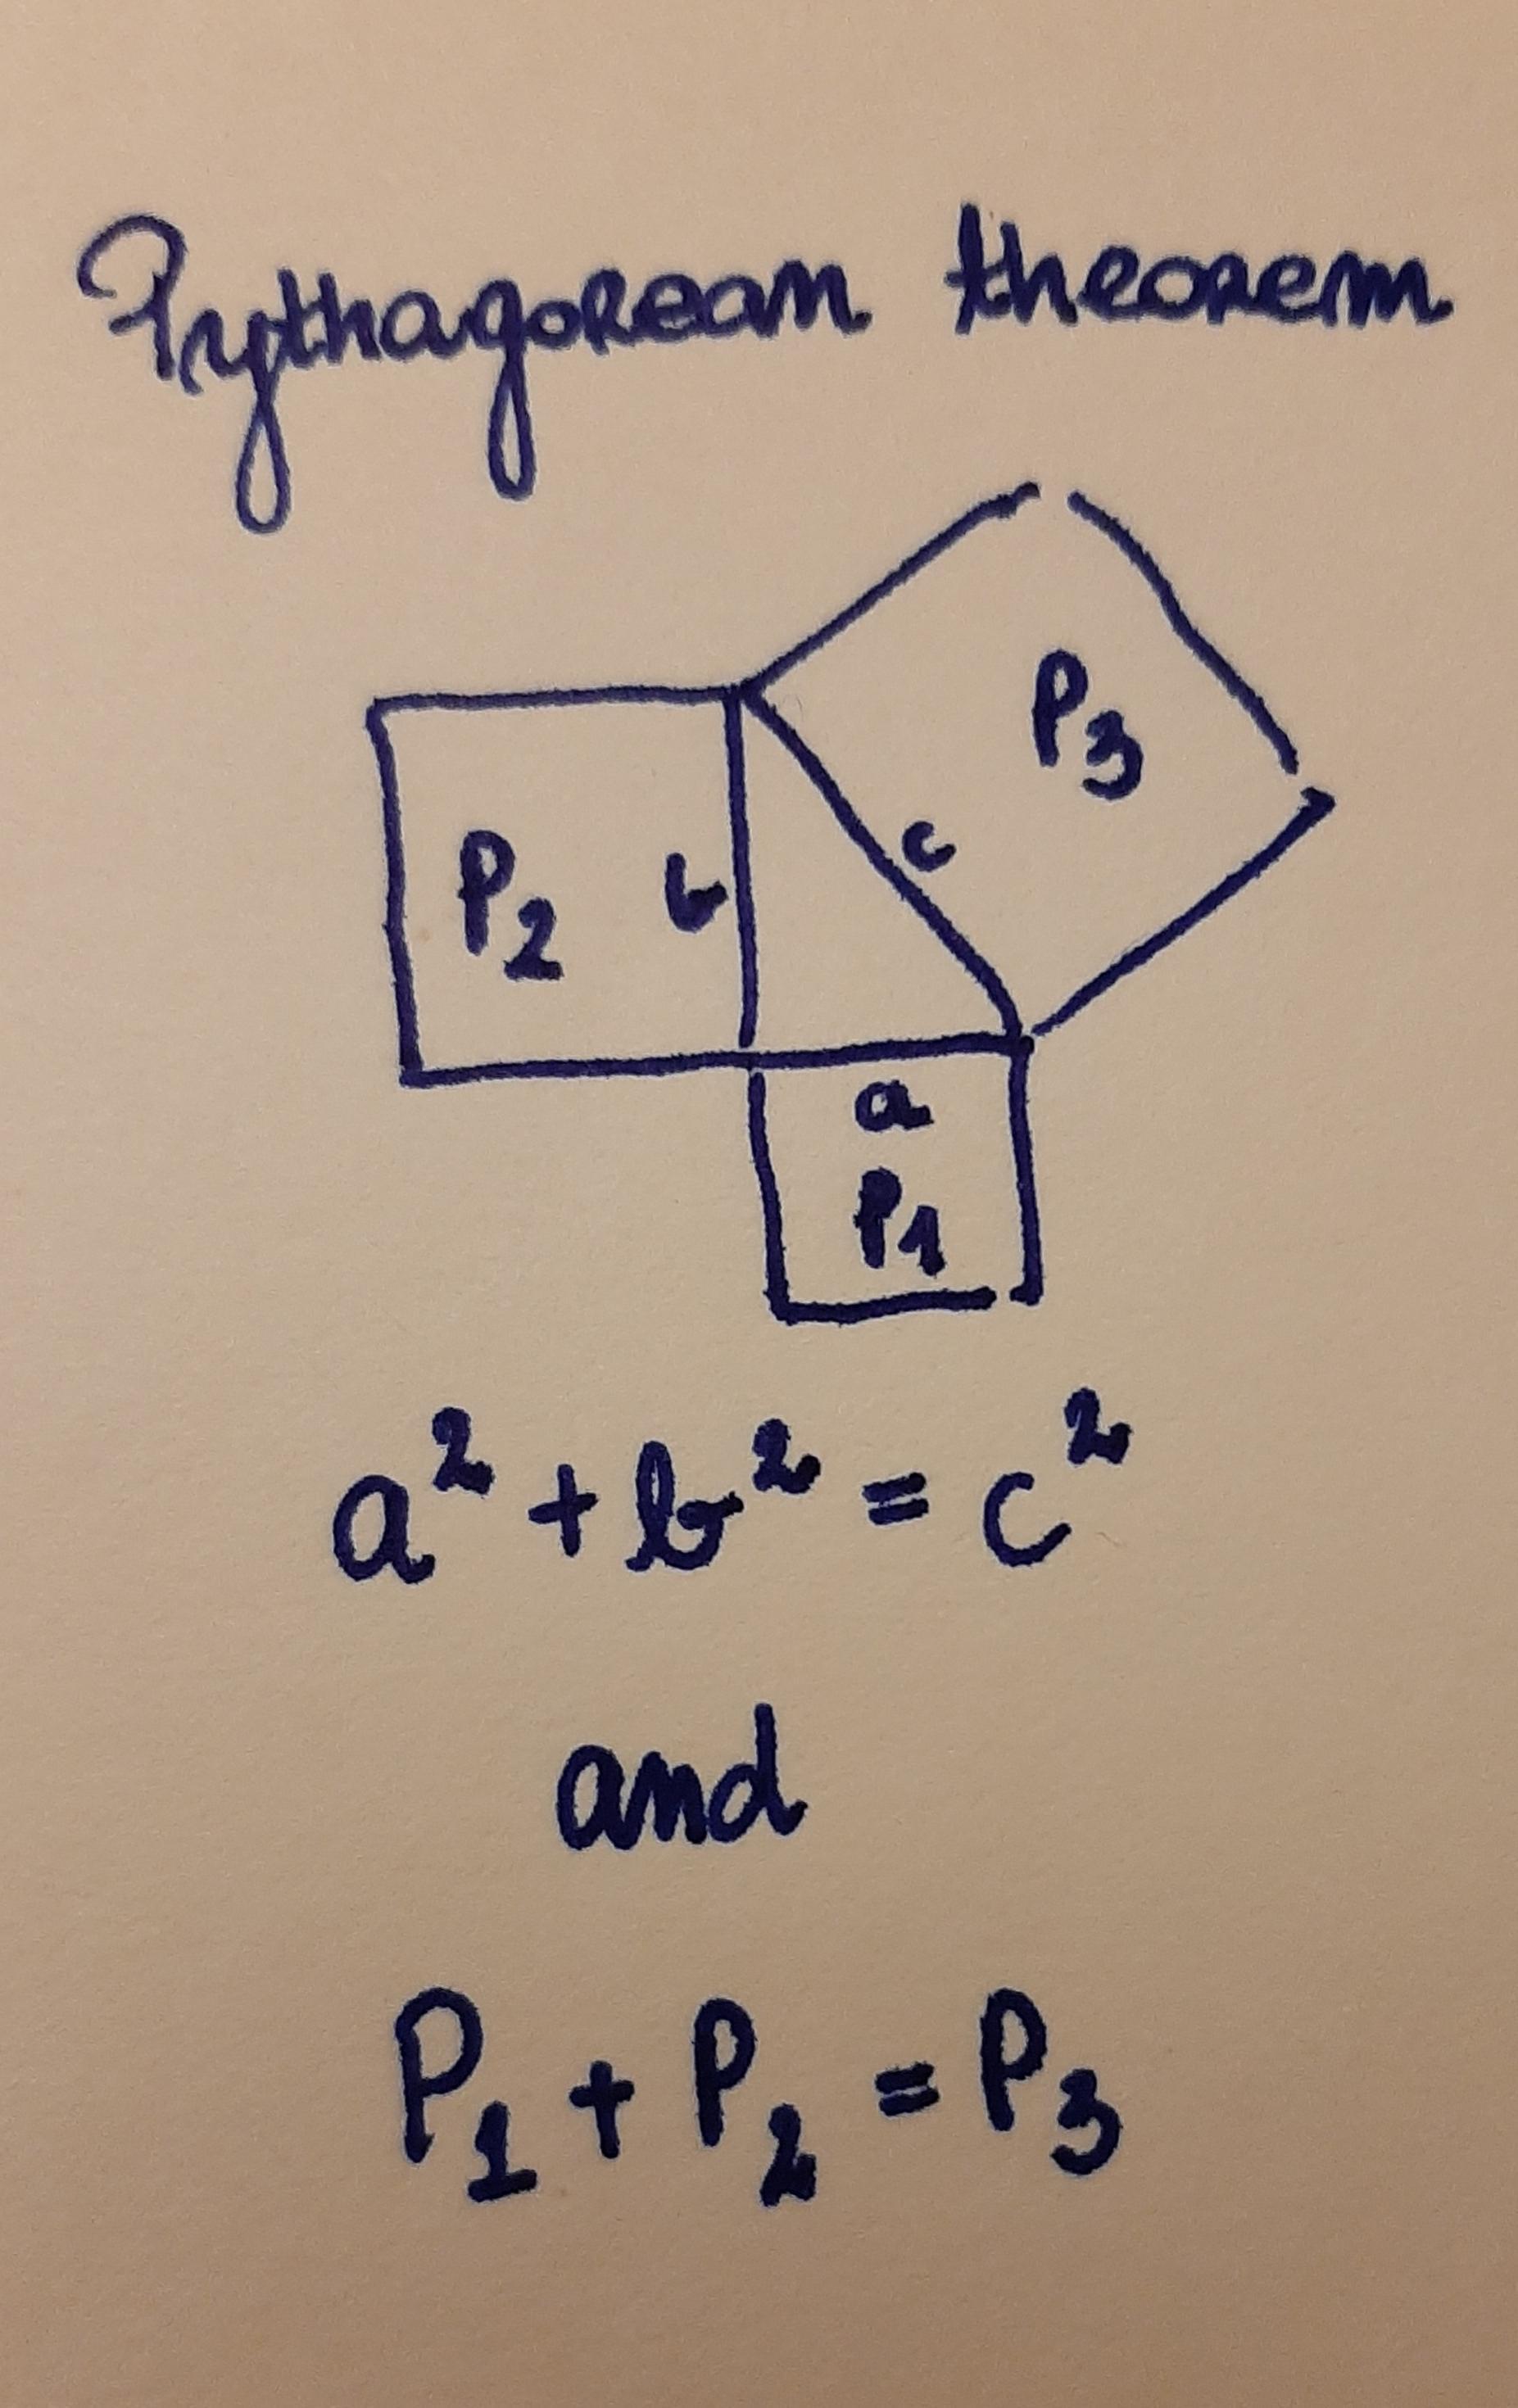 Pythagorean theorem
P3
c
P2 b
a
P1
a² + b² = c²
and
P₁ + P₂ = P₃